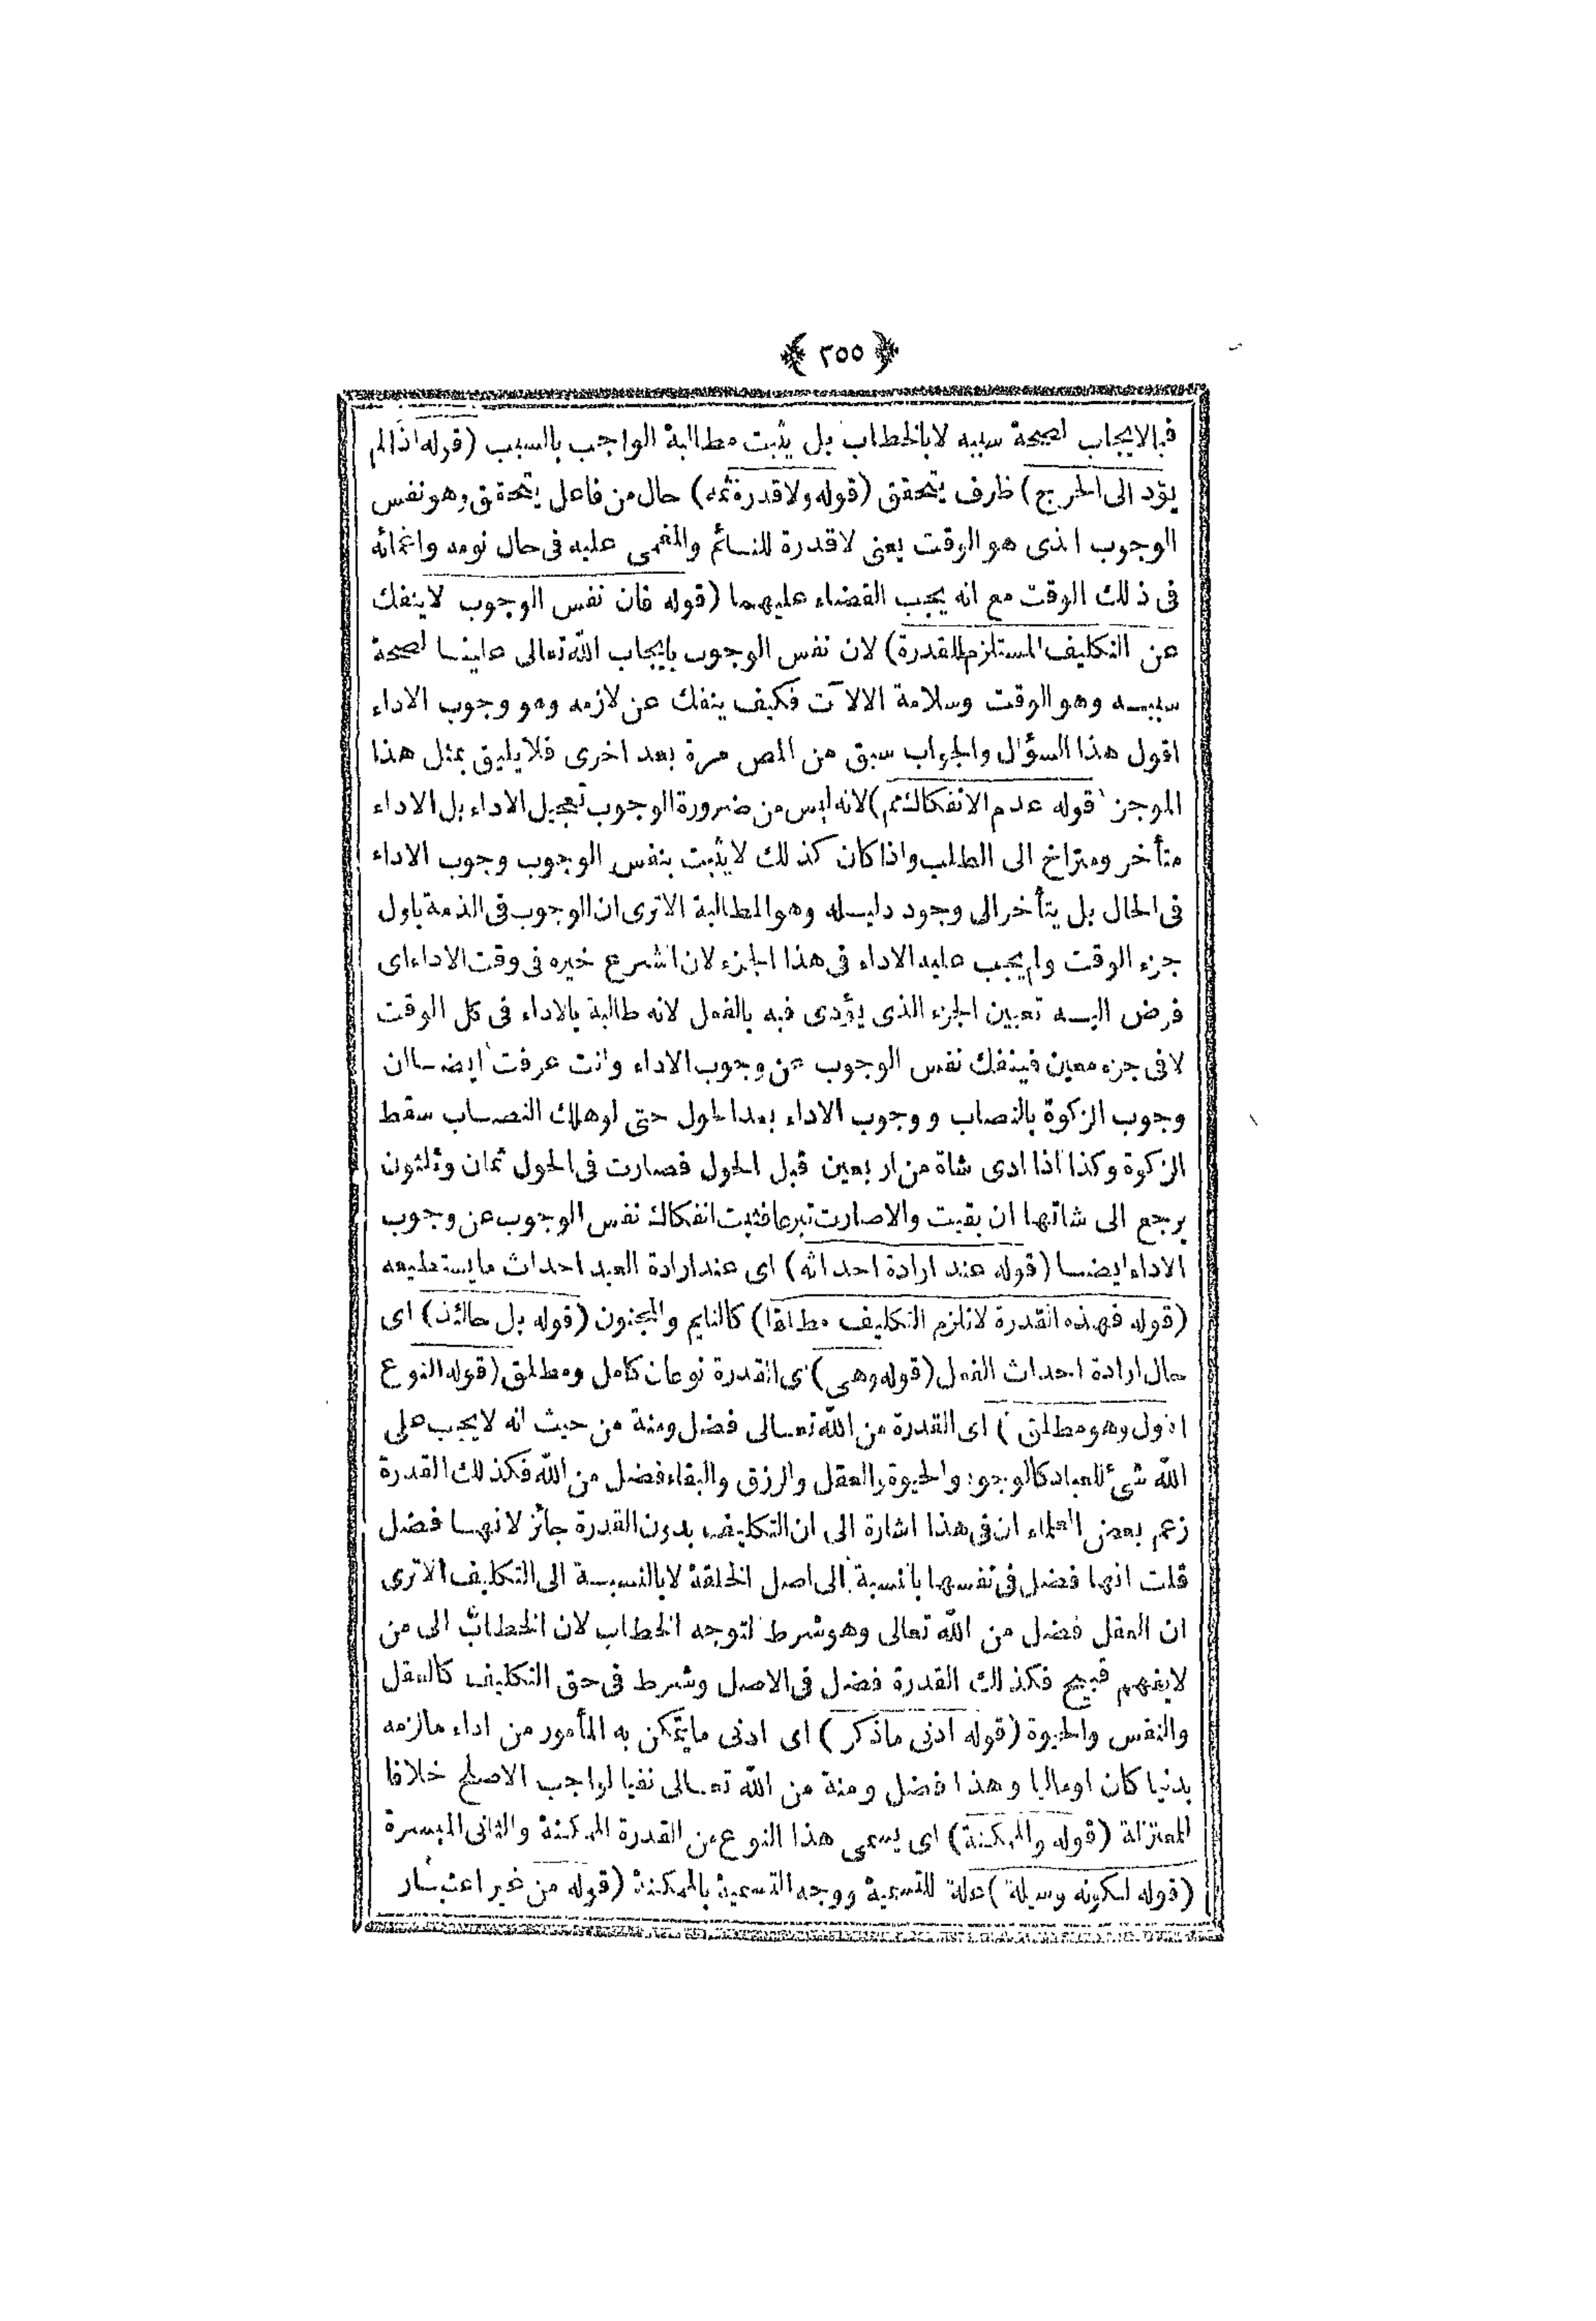 ﴿ ٢٥٥ ﴾
فبالايجاب لصحة سببه لابالخطاب بل يثبت مطالبة الواجب بالسبب (قوله اذا لم
يؤد الى الحرج) ظرف يتحقق (قوله ولا قدرة ثمه) حال من فاعل يتحقق وهو نفس
الوجوب الذى هو الوقت يعنى لا قدرة للنائم والمغمى عليه فى حال نومه واغمائه
فى ذلك الوقت مع انه يجب القضاء عليهما (قوله فان نفس الوجوب لا ينفك
عن التكليف المستلزم للقدرة) لان نفس الوجوب بايجاب الله تعالى علينا لصحة
سببه وهو الوقت وسلامة الالآت فكيف ينفك عن لازمه وهو وجوب الاداء
اقول هذا السؤال والجواب سبق من المص مرة بعد اخرى فلا يليق بمثل هذا
الموجز (قوله عدم الانفكاك مم) لانه ليس من ضرورة الوجوب تعجيل الاداء بل الاداء
متأخر ومتراخ الى الطلب واذا كان كذلك لا يثبت بنفس الوجوب وجوب الاداء
فى الحال بل يتأخر الى وجود دليله وهو المطالبة الا ترى ان الوجوب فى الذمة باول
جزء الوقت ولم يجب عليه الاداء فى هذا الجزء لان الشرع خيره فى وقت الاداء اى
فرض اليه تعيين الجزء الذى يؤدى فيه بالفعل لانه طالبة بالاداء فى كل الوقت
لا فى جزء معين فينفك نفس الوجوب عن وجوب الاداء وانت عرفت ايضا ان
وجوب الزكوة بالنصاب ووجوب الاداء بعد الحول حتى لو هلك النصاب سقط
الزكوة وكذا اذا ادى شاة من اربعين قبل الحول فصارت فى الحول ثمان وثلثون
يرجع الى شاتها ان بقيت والا صارت تبرعا فثبت انفكاك نفس الوجوب عن وجوب
الاداء ايضا (قوله عند ارادة احداثه) اى عند ارادة العبد احداث ما يستطيعه
(قوله فهذه القدرة لا تلزم التكليف مطلقا) كالنايم والمجنون (قوله بل حالئذ) اى
حال ارادة احداث الفعل (قوله وهى) اى القدرة نوعان كامل ومطلق (قوله النوع
الاول وهو مطلق) اى القدرة من الله تعالى فضل ومنة من حيث انه لا يجب على
الله شئ للعباد كالوجود والحيوة والعقل والرزق والبقاء فضل من الله فكذلك القدرة
زعم بعض العلماء ان فى هذا اشارة الى ان التكليف بدون القدرة جائز لانها فضل
قلت انها فضل فى نفسها بالنسبة الى اصل الخلقة لا بالنسبة الى التكليف الا ترى
ان العقل فضل من الله تعالى وهو شرط لتوجه الخطاب لان الخطاب الى من
لا يفهم قبيح فكذلك القدرة فضل فى الاصل وشرط فى حق التكليف كالعقل
والنفس والحيوة (قوله ادنى ما ذكر) اى ادنى ما يتمكن به المأمور من اداء ما لزمه
بدنيا كان او ماليا وهذا فضل ومنة من الله تعالى نفيا لواجب الاصلح خلافا
للمعتزلة (قوله والممكنة) اى يسمى هذا النوع من القدرة الممكنة والثانى الميسرة
(قوله لكونه وسيلة) علة للتسمية ووجه التسمية بالممكنة (قوله من غير اعتبار